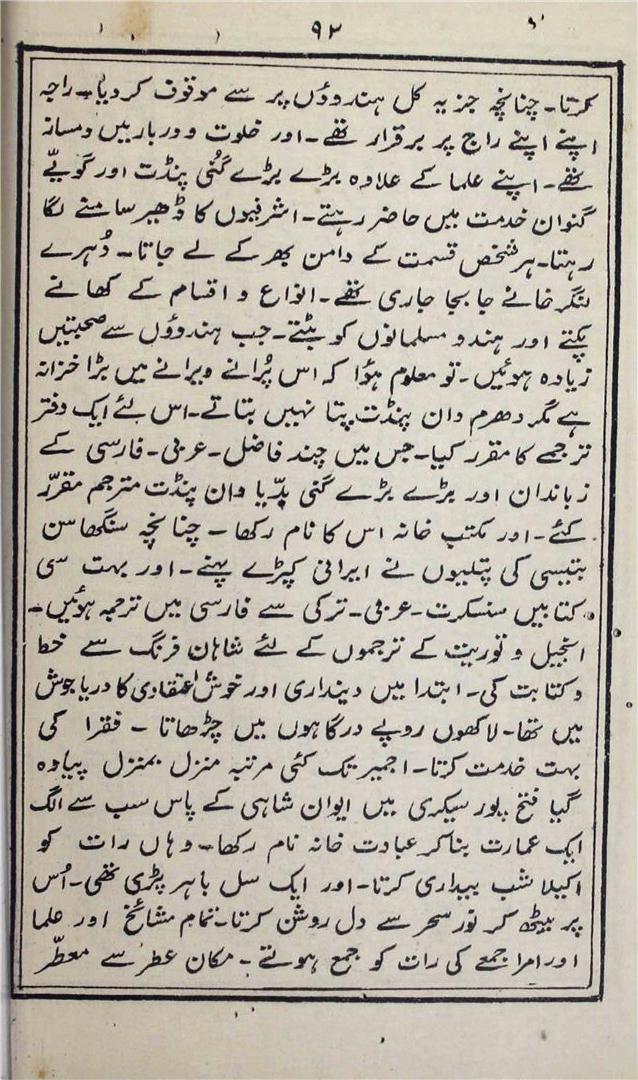 ۹۲
کرتا۔ چنانچہ جزیہ کل ہندوؤں پر سے موقوف کردیا۔ راجہ
اپنے اپنے راج پر برقرار تھے۔ اور خلوت و دربار میں ومسانہ
تھے۔ اپنے علما کے علاوہ بڑے بڑے گُنی پنڈت اور گویّے
گنوان خدمت میں حاضر رہتے۔ اشرفیوں کا ڈھیر سامنے لگا
رہتا۔ ہر شخص قسمت کے دامن بھر کے لے جاتا۔ دُہرے
لنگر خانے جا بجا جاری تھے۔ انواع و اقسام کے کھانے
پکتے اور ہندو مسلمانوں کو بٹتے۔ جب ہندوؤں سے صحبتیں
زیادہ ہوئیں۔ تو معلوم ہؤا کہ اس پُرانے ویرانے میں بڑا خزانہ
ہے مگر دھرم دان پنڈت پتا نہیں بتاتے۔ اس لئے ایک دفتر
ترجمے کا مقرر کیا۔ جس میں چند فاضل۔ عربی۔ فارسی کے
زباندان اور بڑے بڑے گنی پدّیا وان پنڈت مترجم مقرّر
کئے۔ اور مکتب خانہ اس کا نام رکھا۔ چنانچہ سنگھاسن
بتیسی کی پتلیوں نے ایرانی کپڑے پہنے۔ اور بہت سی
کتابیں سنسکرت۔ عربی۔ ترکی سے فارسی میں ترجمہ ہوئیں۔
انجیل و توریت کے ترجموں کے لئے شاہان فرنگ سے خط
و کتابت کی۔ ابتدا میں دینداری اور خوش اعتقادی کا دریا جوش
میں تھا۔ لاکھوں روپے درگاہوں میں چڑھاتا۔ فقرا کی
بہت خدمت کرتا۔ اجمیر تک کئی مرتبہ منزل بمنزل پیادہ
گیا فتح پور سیکری میں ایوان شاہی کے پاس سب سے الگ
ایک عمارت بناکر عبادت خانہ نام رکھا۔ وہاں رات کو
اکیلا شب بیداری کرتا۔ اور ایک سل باہر پڑی تھی۔ اُس
پر بیٹھ کر نور سحر سے دل روشن کرتا۔ تمام مشائخ اور علما
اور امرا جمعے کی رات کو جمع ہوتے۔ مکان عطر سے معطّر